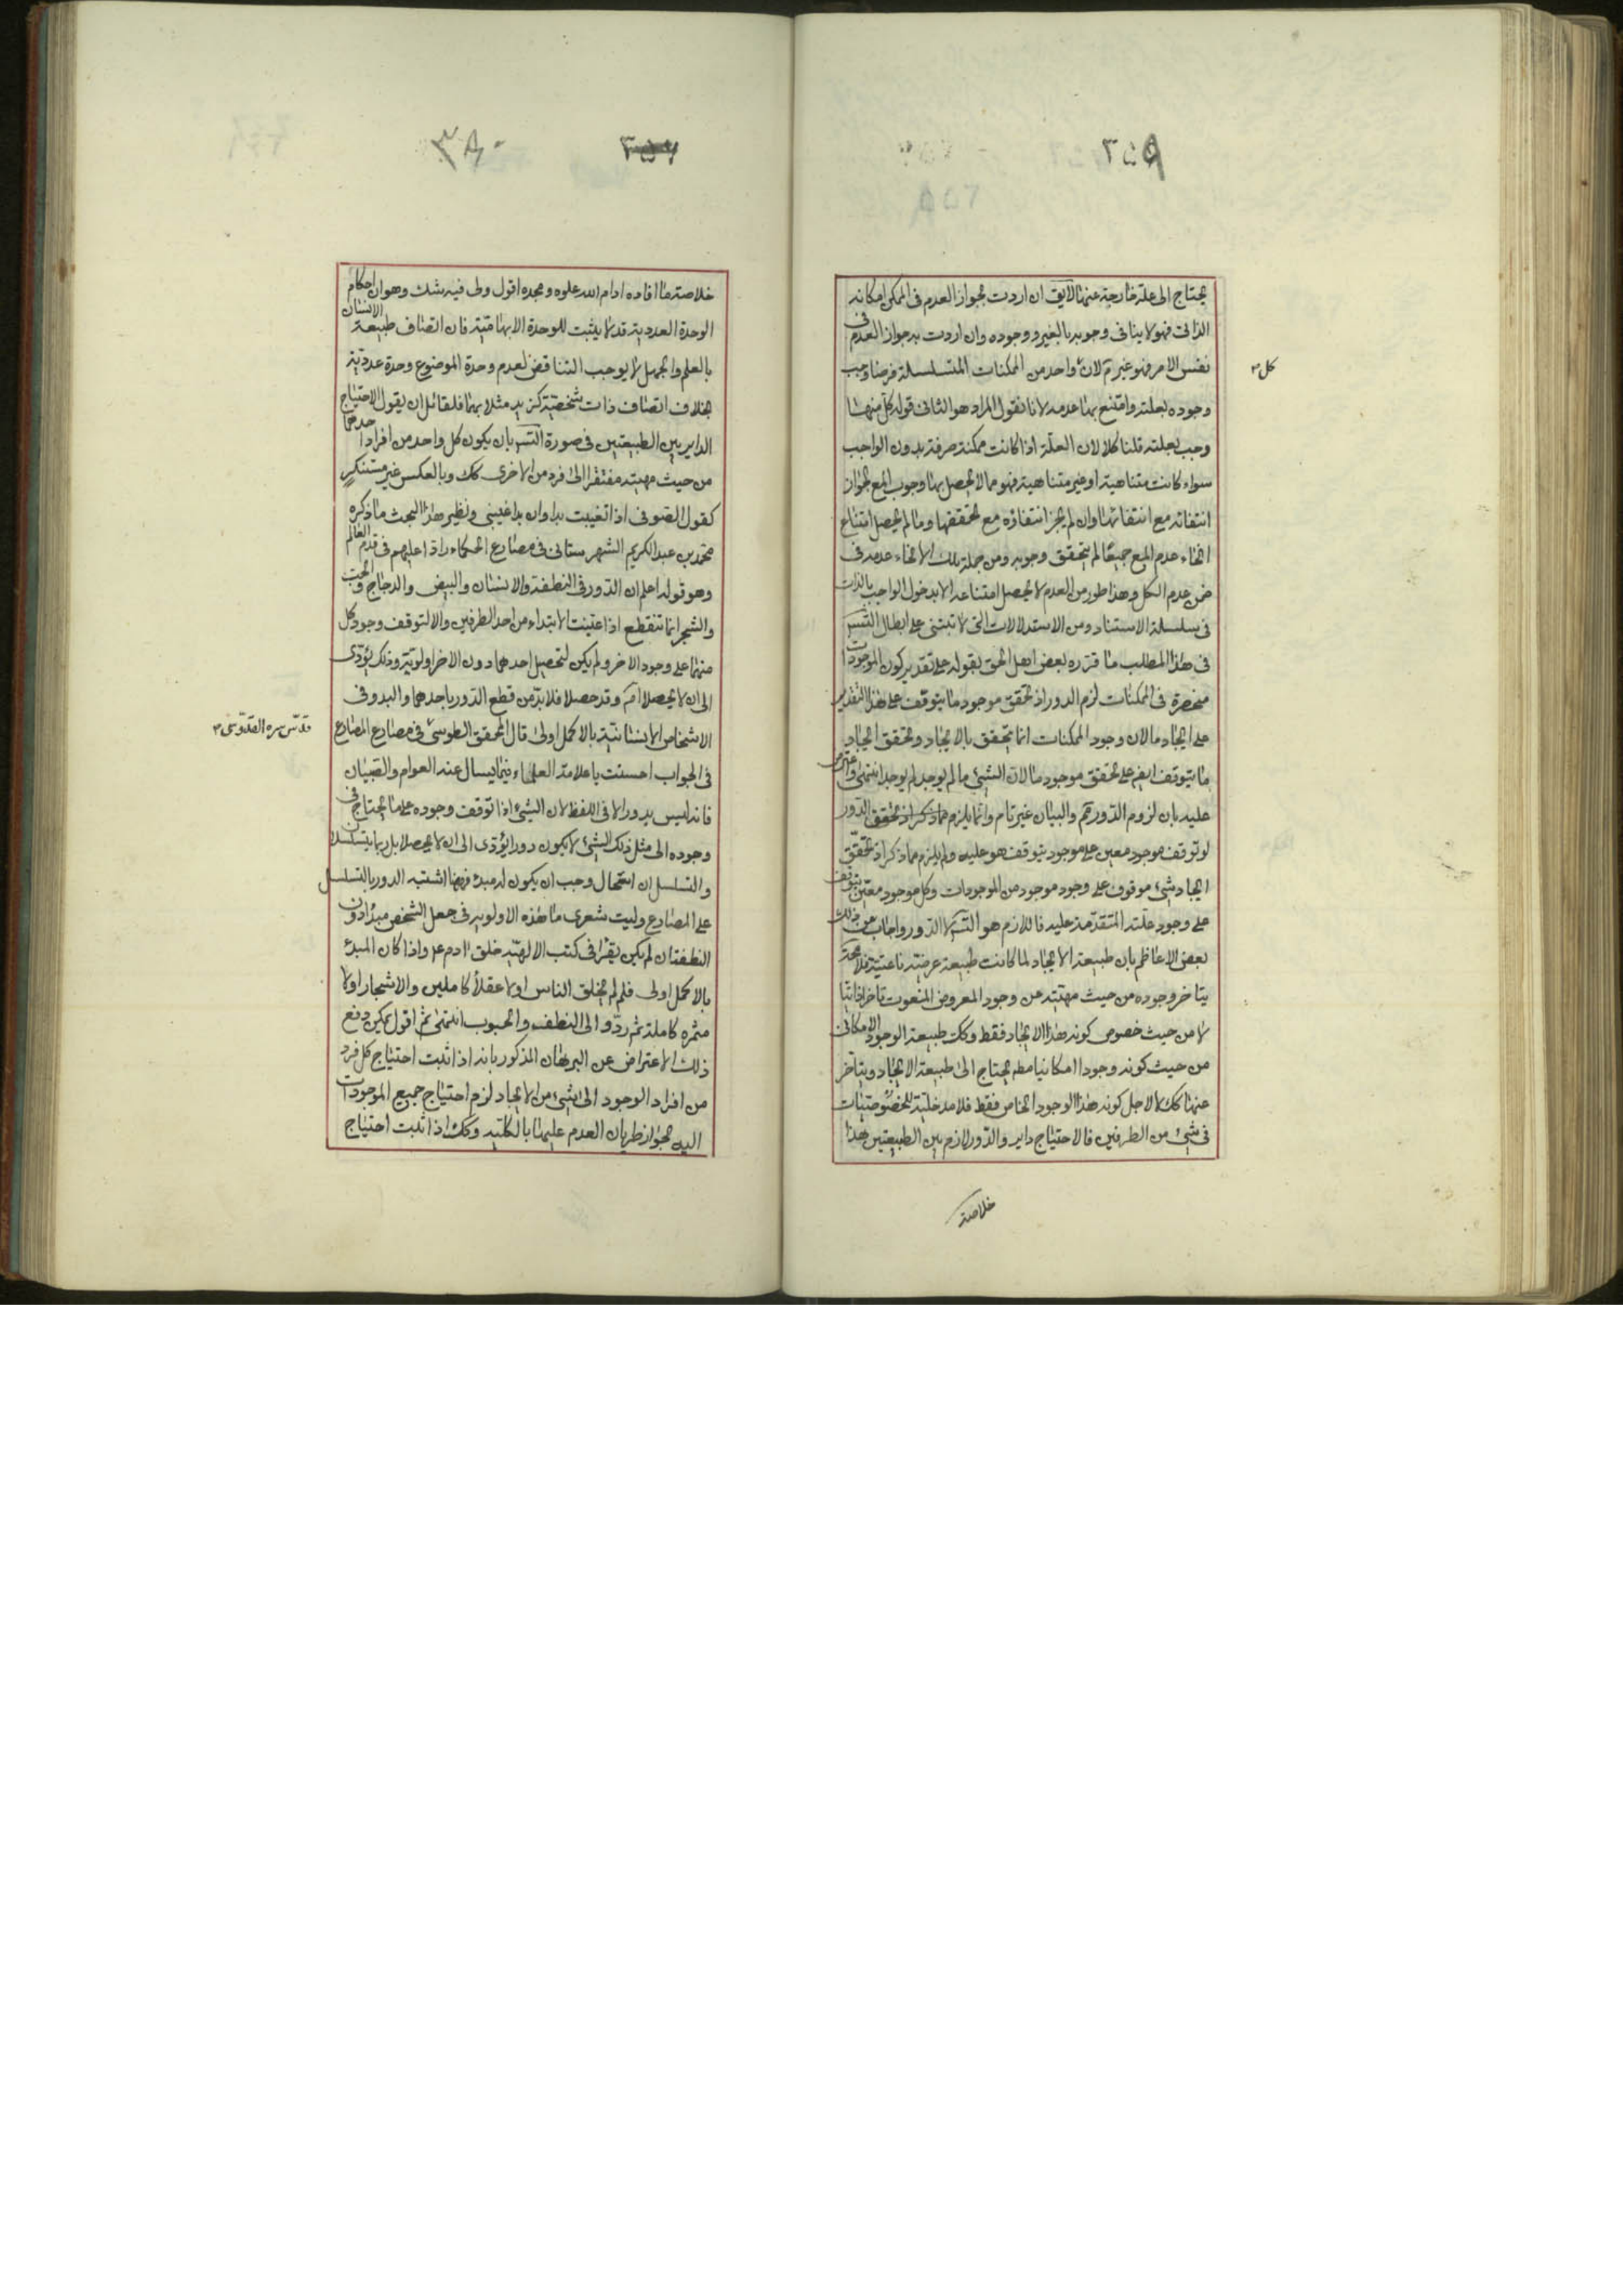 ٣٥٩
يحتاج الى علة خارجة عنها لا يق ان اردت بجواز العدم فى الممكن امكانه
الذاتى فهو لا ينافى وجوبه بالغير ووجوده وان اردت به جواز العدم فى
نفس الامر فهو غير تم لان كل واحد من الممكنات المتسلسلة فرضنا وجب
وجوده بعلته وامتنع بها عدمه لانا نقول المراد هو الثانى قوله كل منها
وجب بعلته قلنا كلا لان العلة اذا كانت ممكنة صرفة بدون الواجب
سواء كانت متناهية او غير متناهية فهو مما لا يحصل بها وجوب المع لجواز
انتفائه مع انتفائها وان لم يجز انتفاؤه مع تحققها وما لم يحصل امتناع
انحاء عدم المع جميعًا لم يتحقق وجوبه ومن جملة تلك الانحاء عدمه فى
ضمن عدم الكل وهذا طور من العدم لا يحصل امتناعه الا بدخول الواجب بالذات
فى سلسلة الاستناد ومن الاستدلالات التى لا تبتنى على ابطال التس
فى هذا المطلب ما قرره بعض اهل الحق بقوله على تقدير كون الموجودات
منحصرة فى الممكنات لزم الدور اذ تحقق موجود ما يتوقف على هذا التقدير
على ايجاد ما لان وجود الممكنات انما يتحقق بالايجاد وتحقق ايجاد
ما يتوقف ايضم على تحقق موجود ما لان الشىء ما لم يوجد لم يوجد انتهى واعترض
عليه بان لزوم الدور تم والبيان غير تام وانما يلزم مما ذكر اذ تحقق الدور
لو توقف موجود معين على موجود يتوقف هو عليه ولم يلزم مما ذكر اذ تحقق
ايجاد شىء موقوف على وجود موجود من الموجودات وكل موجود معين يتوقف
على وجود علته المتقدمة عليه فاللازم هو التس لا الدور واجاب عن ذلك
بعض الاعاظم بان طبيعة الايجاد لما كانت طبيعة عرضية ناعتية فلا محة
يتاخر وجوده من حيث مهيته عن وجود المعروض المنعوت تاخرا ذاتيا
لا من حيث خصوص كونه هذا الايجاد فقط وكك طبيعة الوجود الامكانى
من حيث كونه وجودا امكانيا مطم يحتاج الى طبيعة الايجاد ويتاخر
عنها كك لا لاجل كونه هذا الوجود الخاص فقط فلا مدخلية للخصوصيات
فى شىء من الطرفين فالاحتياج داير والدور لازم بين الطبيعتين هذا
خلاصة
كل م
٣٨٠
٣٥٧
خلاصة ما افاده ادام الله علوه ومجده اقول ولى فيه شك وهو ان احكام
الوحدة العددية قد لا يثبت للوحدة الابهامية فان اتصاف طبيعة الانسان
بالعلم والجهل لا يوجب التناقض لعدم وحدة الموضوع وحدة عددية
بخلاف اتصاف ذات شخصية كزيد مثلا بهما فلقائل ان يقول الاحتياج
الداير بين الطبيعتين فى صورة التس بان يكون كل واحد من افراد احدهما
من حيث مهيته مفتقرا الى فرد من الاخرى كك وبالعكس غير مستنكر
كقول الصوفى اذا تغيبت بدا وان بدا غيبنى ونظير هذا البحث ما ذكره
محمد بن عبد الكريم الشهرستانى فى مصارع الحكماء رادا عليهم فى قدم العالم
وهو قوله اعلم ان الدور فى النطفة والانسان والبيض والدجاج والحب
والشجر انما تنقطع اذا عينت الابتداء من احد الطرفين والا لتوقف وجود كل
منهما على وجود الاخر ولم يكن لتحصيل احدهما دون الاخر اولوية وذلك يؤدى
الى ان لا يحصلا ام وقد حصلا فلا بد من قطع الدور باحدهما والبدو فى
الاشخاص الانسانية بالاكمل اولى قال المحقق الطوسى فى مصارع المصارع
فى الجواب احسنت يا علامة العلماء فيما يسال عنه العوام والصبيان
فانه ليس بدور الا فى اللفظ لان الشىء اذا توقف وجوده على ما يحتاج فى
وجوده الى مثل ذلك الشىء لا يكون دورا يؤدى الى ان لا يحصلا بل ربما يتسلسلان
والتسلسل ان استحال وجب ان يكون له مبدء فههنا اشتبه الدور بالتسلسل
على المصارع وليت شعرى ما هذه الاولوية فى جعل الشخص مبدأ دون
النطفة ان لم يكن يقرا فى كتب الالهية خلق ادم عم واذا كان المبدء
بالاكمل اولى فلم لم يخلق الناس اولا عقلا كاملين والاشجار اولا
مثمرة كاملة ثم ردوا الى النطف والحبوب انتهى ثم اقول يمكن دفع
ذلك الاعتراض عن البرهان المذكور بانه اذا ثبت احتياج كل فرد
من افراد الوجود الى شىء من الايجاد لزم احتياج جميع الموجودات
اليه لجواز طريان العدم عليها بالكلية وكك اذا ثبت احتياج
قدس سره القدوسى م